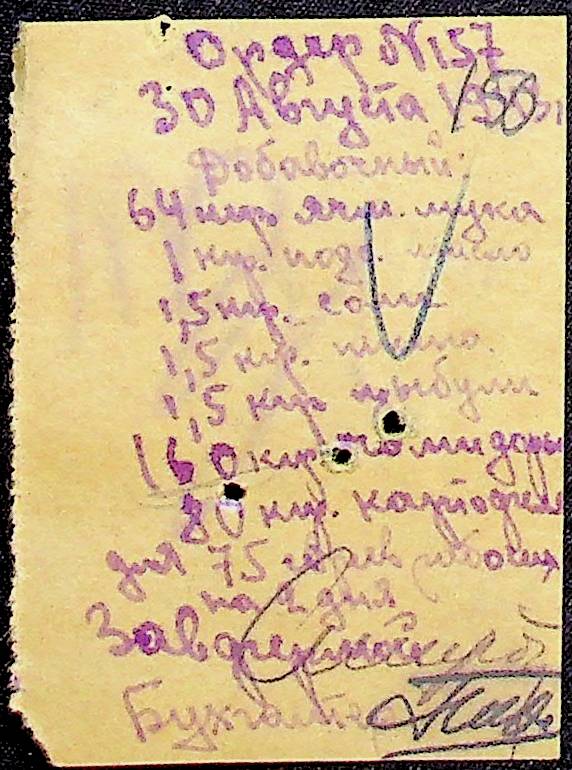 Ордер N 157
30 Августа 193
Добавочный
64 кгр ячн. мука
1 кгр. подс. масло
1,5 кгр. соли
1,5 кгр. пшено
1,5 кгр цыбули
160 кгр помидоры
80 кгр. картофеля
для 75
на 2 дня
Завфермой
Бухгалте